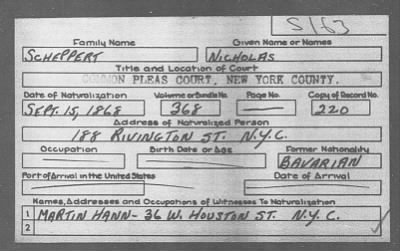 S163
Family Name Given Name or Names
SCHEPPERT NICHOLAS
Title and Location of Court
COMMON PLEAS COURT, NEW YORK COUNTY.
Date of Naturalization Volume or Bundle No. Page No. Copy of Record No.
SEPT. 15, 1868 368 — 220
Address of Naturalized Person
188 RIVINGTON ST. N.Y.C.
Occupation Birth Date or Age Former Nationality
BAVARIAN
Port of Arrival in the United States Date of Arrival
Names, Addresses and Occupations of Witnesses To Naturalization
1 MARTIN HANN- 36 W. HOUSTON ST. N.Y.C.
2